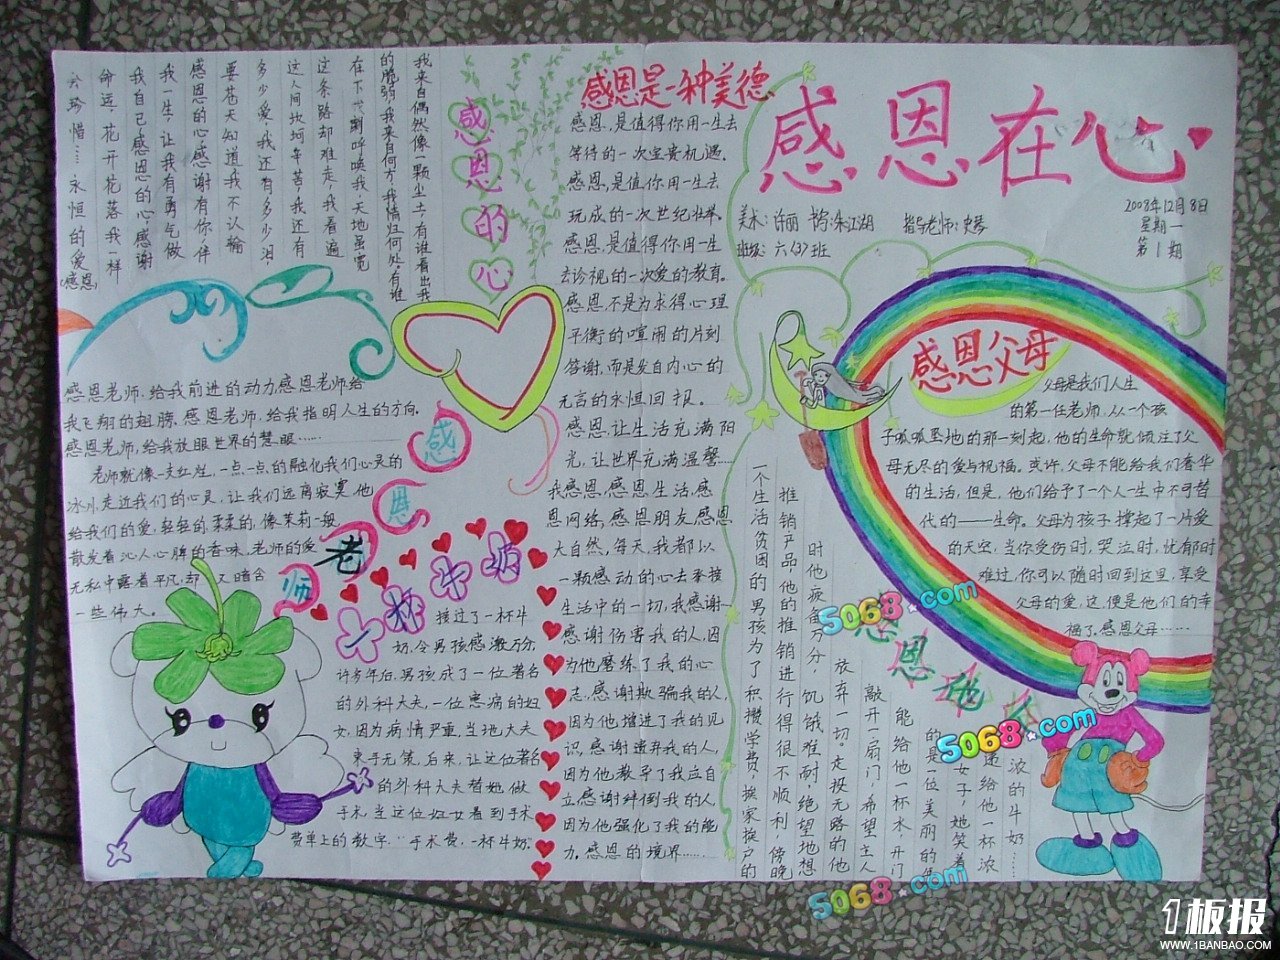 感恩在心
美术:许丽 书写:朱江湖 指导老师:史琴
班级:六(3)班
2008年12月8日
星期一
第1期
感恩是一种美德
感恩,是值得你用一生去
等待的一次宝贵机遇.
感恩,是值你用一生去
玩成的一次世纪壮举.
感恩,是值得你用一生
去诊视的一次爱的教育.
感恩,不是为求得心理
平衡的喧闹的片刻
答谢,而是发自内心的
无言的永恒回报。
感恩,让生活充满阳
光,让世界充满温馨……
我感恩,感恩生活,感
恩网络,感恩朋友,感恩
大自然,每天,我都以
一颗感动的心去承接
生活中的一切,我感谢…
感谢伤害我的人,因
为他磨练了我的心
志,感谢欺骗我的人,
因为他增进了我的见
识,感谢遗弃我的人,
因为他教导了我应自
立,感谢绊倒我的人,
因为他强化了我的能
力.感恩的境界………
感恩的心
我来自偶然像一颗尘土,有谁看出我
的脆弱,我来自何方,我情归何处,有谁
在下一刻呼唤我.天地虽宽
这条路却难走,我看遍
这人间坎坷辛苦,我还有
多少爱,我还有多少泪
要苍天知道,我不认输
感恩的心感谢有你伴
我一生,让我有勇气做
我自己感恩的心感谢
命运,花开花落我一样
会珍惜……永恒的爱
(感恩)
感恩老师
感恩老师,给我前进的动力,感恩老师,给
我飞翔的翅膀,感恩老师,给我指明人生的方向,
感恩老师,给我放眼世界的慧眼……
老师就像一支红烂,一点一点的融化我们心灵的
冰川,走近我们的心灵,让我们远离寂寞,他
给我们的爱,轻轻的,柔柔的,像茉莉一般,
散发着沁人心脾的香味,老师的爱
无私中露着平凡,却又暗含
一些伟大。
一杯牛奶
接过了一杯牛
奶,令男孩感激万分,
许多年后,男孩成了一位著名
的外科大夫,一位患病的妇
女,因为病情严重,当地大夫
束手无策,后来,让这位著名
的外科大夫替她做
手术,当这位妇女看到手术
费单上的数字,"手术费,一杯牛奶."
感恩父母
父母是我们人生
的第一任老师,从一个孩
子呱呱坠地的那一刻起,他的生命就倾注了父
母无尽的爱与祝福。或许,父母不能给我们奢华
的生活,但是,他们给予了一个人一生中不可替
代的——生命。父母为孩子撑起了一片爱
的天空,当你受伤时,哭泣时,忧郁时
难过,你可以随时回到这里,享受
父母的爱,这便是他们的幸
福了,感恩父母……
感恩他人
一个生活贫困的男孩为了积攒学费,挨家挨户的
推销产品,他的推销进行得很不顺利,傍晚
时他疲惫万分,饥饿难耐,绝望地想
放弃一切。走投无路的他
敲开一扇门,希望主人
能给他一杯水,开门
的是一位美丽的年
女子,她笑着
递给他一杯浓
浓的牛奶……
5068.com
5068.com
5068.com
1板报
WWW.1BANBAO.COM